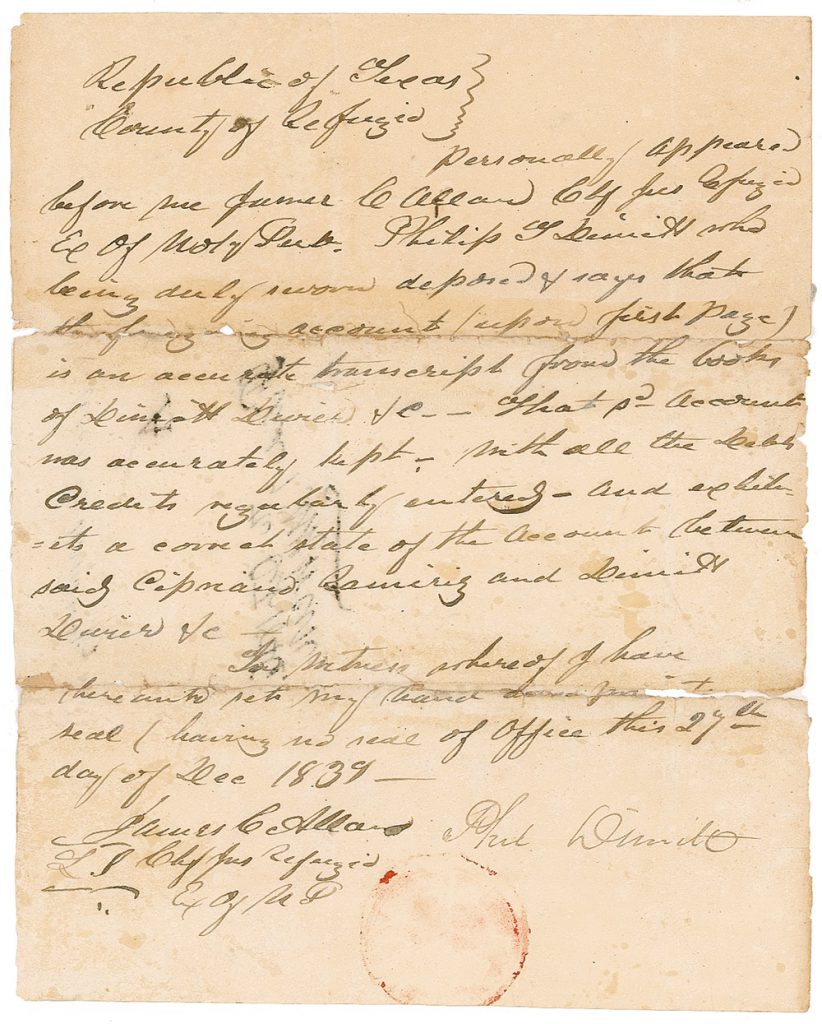 Republic of Texas
County of Refugio
Personally appeared
before me James C Allan Chf Jus Refugio
Ex Of Noty Pub. Philip Dimitt who
being duly sworn deposed & says that
the foregoing account (upon first page)
is an accurate transcript from the books
of Dimitt &c - That sd Account
was accurately kept - with all the Debts
Credits regularly entered - and exhib-
=ets a correct state of the Account between
said Cipriano Ramiriz and Dimitt
&c
In witness whereof I have
hereunto set my hand and
seal (having no seal of Office this 27th
day of Dec 1839 —
James C Allan Phil Dimitt
L S Chf Jus Refugio
Ex Of N P